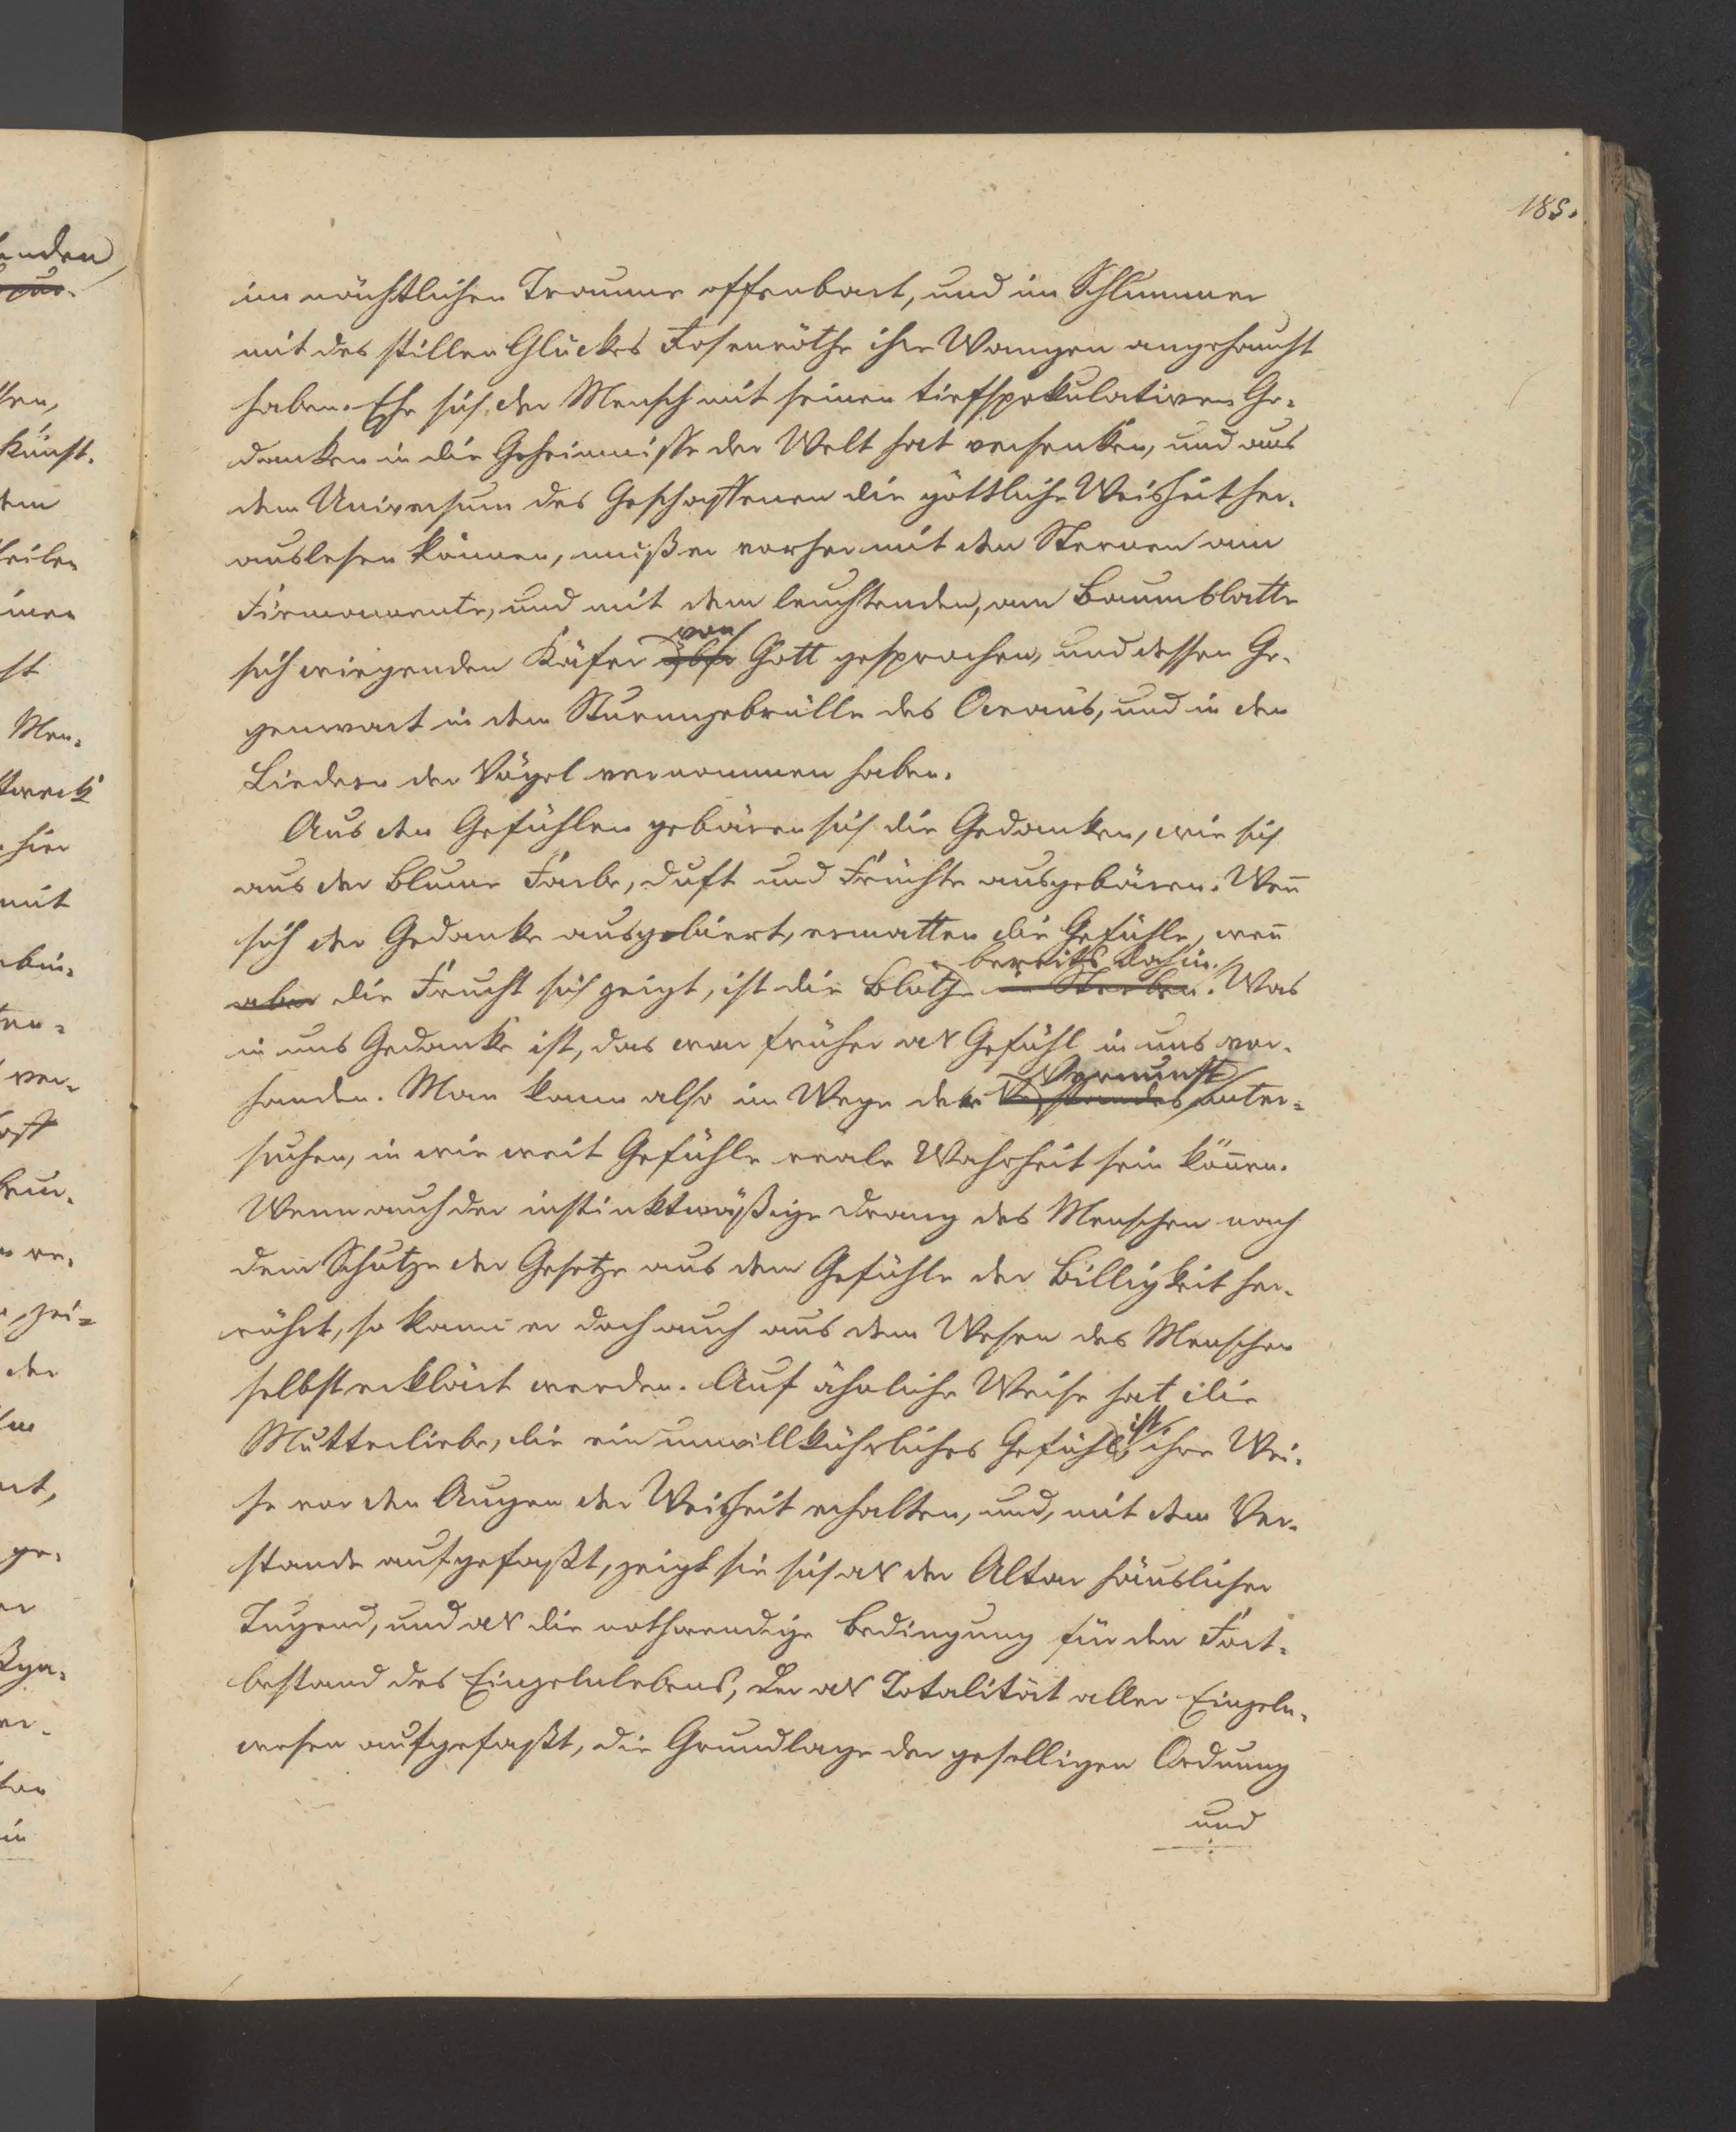 185.
im nächtlichen Traume offenbart, und im Schlummer
mit des stillen Glückes Rosenröthe ihre Wangen angehaucht
haben. Ehe sich der Mensch mit seinen tiefspekulativen Ge-
danken in die Geheimnisse der Welt hat versenken, und aus
dem Universum des Geschaffenen die göttliche Weisheit her-
auslesen können, muß er vorher mit den Sternen am
Firmamente, und mit dem leuchtenden, am Baumblatte
von
sich wiegenden Käfer über Gott gesprochen, und dessen Ge-
genwart in dem Sturmgebrülle des Oceans, und in den
Liedern der Vögel vernommen haben.
Aus den Gefühlen gebären sich die Gedanken, wie sich
aus der Blume Farbe, Duft und Früchte ausgebären. Wen̄
sich der Gedanke ausgebiert, ermatten die Gefühle, wen̄
bereits dahin.
aber die Frucht sich zeigt, ist die Blüthe im Sterben. Was
in uns Gedanke ist, das war früher als Gefühl in uns vor-
Vernunft
handen. Man kann also im Wege der Verstandes unter-
suchen, in wie weit Gefühle reale Wahrheit sein kön̄en.
Wenn auch der instinktmäßige Drang des Menschen nach
dem Schutze der Gesetze aus dem Gefühle der Billigkeit her-
rührt, so kann er doch auch aus dem Wesen des Menschen
selbst erklärt werden. Auf ähnliche Weise hat die
ist,
Mutterliebe, die ein unwillkührliches Gefühl ihre Wei-
he vor den Augen der Weisheit erhalten, und, mit dem Ver-
stande aufgefaßt, zeigt sie sich als der Altar häuslicher
Tugend, und als die nothwendige Bedingung für den Fort-
bestand des Einzelnlebens, der als Totalität aller Einzeln-
wesen aufgefaßt, die Grundlage der geselligen Ordnung
und